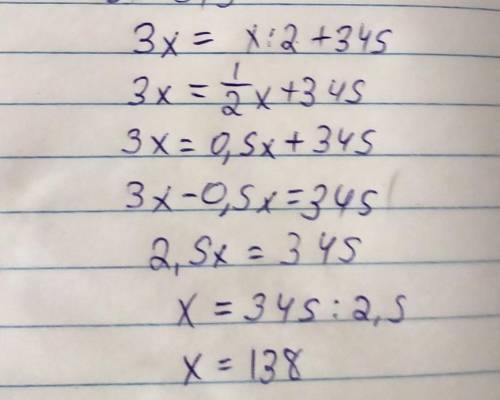 3x = x:2 + 345
3x = 1/2 x + 345
3x = 0,5x + 345
3x - 0,5x = 345
2,5x = 345
x = 345 : 2,5
x = 138